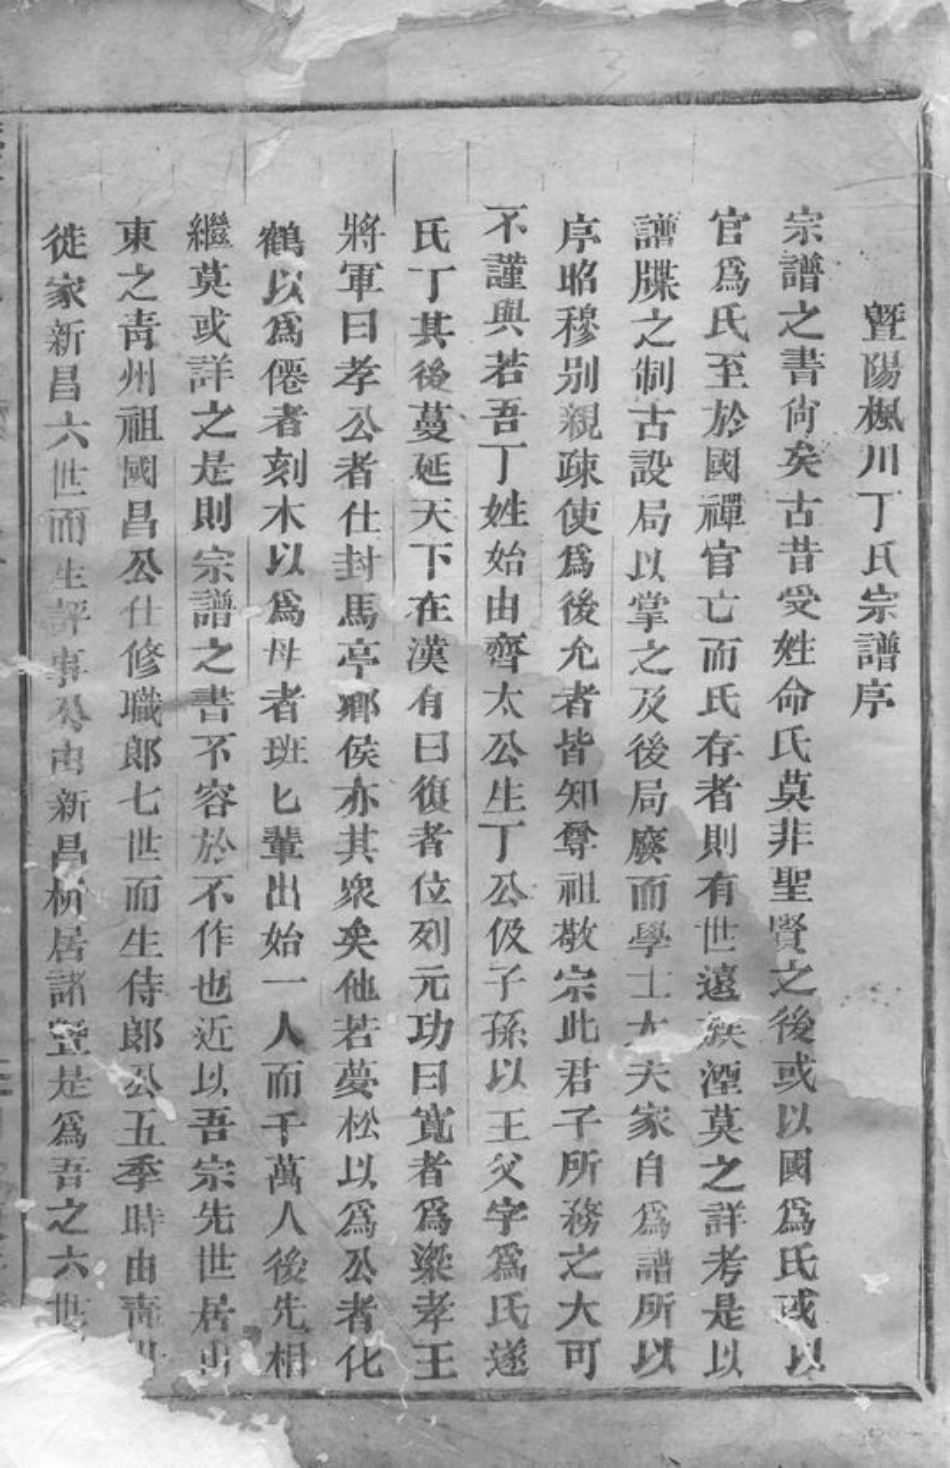 暨陽楓川丁氏宗譜序
宗譜之書尙矣古昔受姓命氏莫非聖賢之後或以國爲氏或以
官爲氏至於國禪官亡而氏存者則有世遠族湮莫之詳考是以
譜牒之制古設局以掌之及後局廢而學士大夫家自爲譜所以
序昭穆别親疎使爲後允者皆知尊祖敬宗此君子所務之大可
不謹與若吾丁姓始由齊太公生丁公伋子孫以王父字爲氏遂
氏丁其後蔓延天下在漢有曰復者位列元功曰寬者爲梁孝王
將軍曰孝公者仕封馬亭鄉侯亦其衆矣他若夢松以爲公者化
鶴以爲僊者刻木以爲母者班匕輩出始一人而千萬人後先相
繼莫或詳之是則宗譜之書不容於不作也近以吾宗先世居山
東之靑州祖國昌公仕修職郎七世而生侍郎公五季時由靑州
徙家新昌六世而生評事公由新昌析居諸暨是爲吾之六世